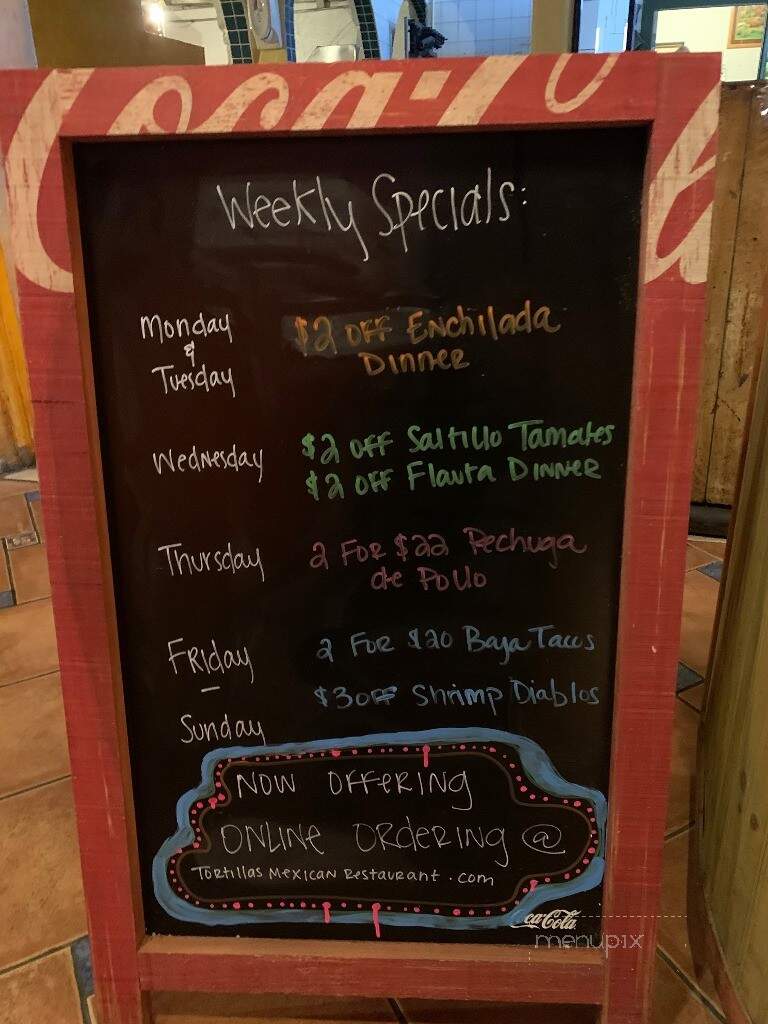 Coca-Cola
Weekly Specials:
Monday
&
Tuesday
$2 OFF Enchilada
Dinner
Wednesday
$2 OFF Saltillo Tamales
$2 OFF Flauta Dinner
Thursday
2 For $22 Pechuga
de Pollo
Friday
-
Sunday
2 For $20 Baja Tacos
$3 OFF Shrimp Diablos
NOW OFFERING
ONLINE ORDERING @
Tortillas Mexican Restaurant.com
ca-Cola
menupix